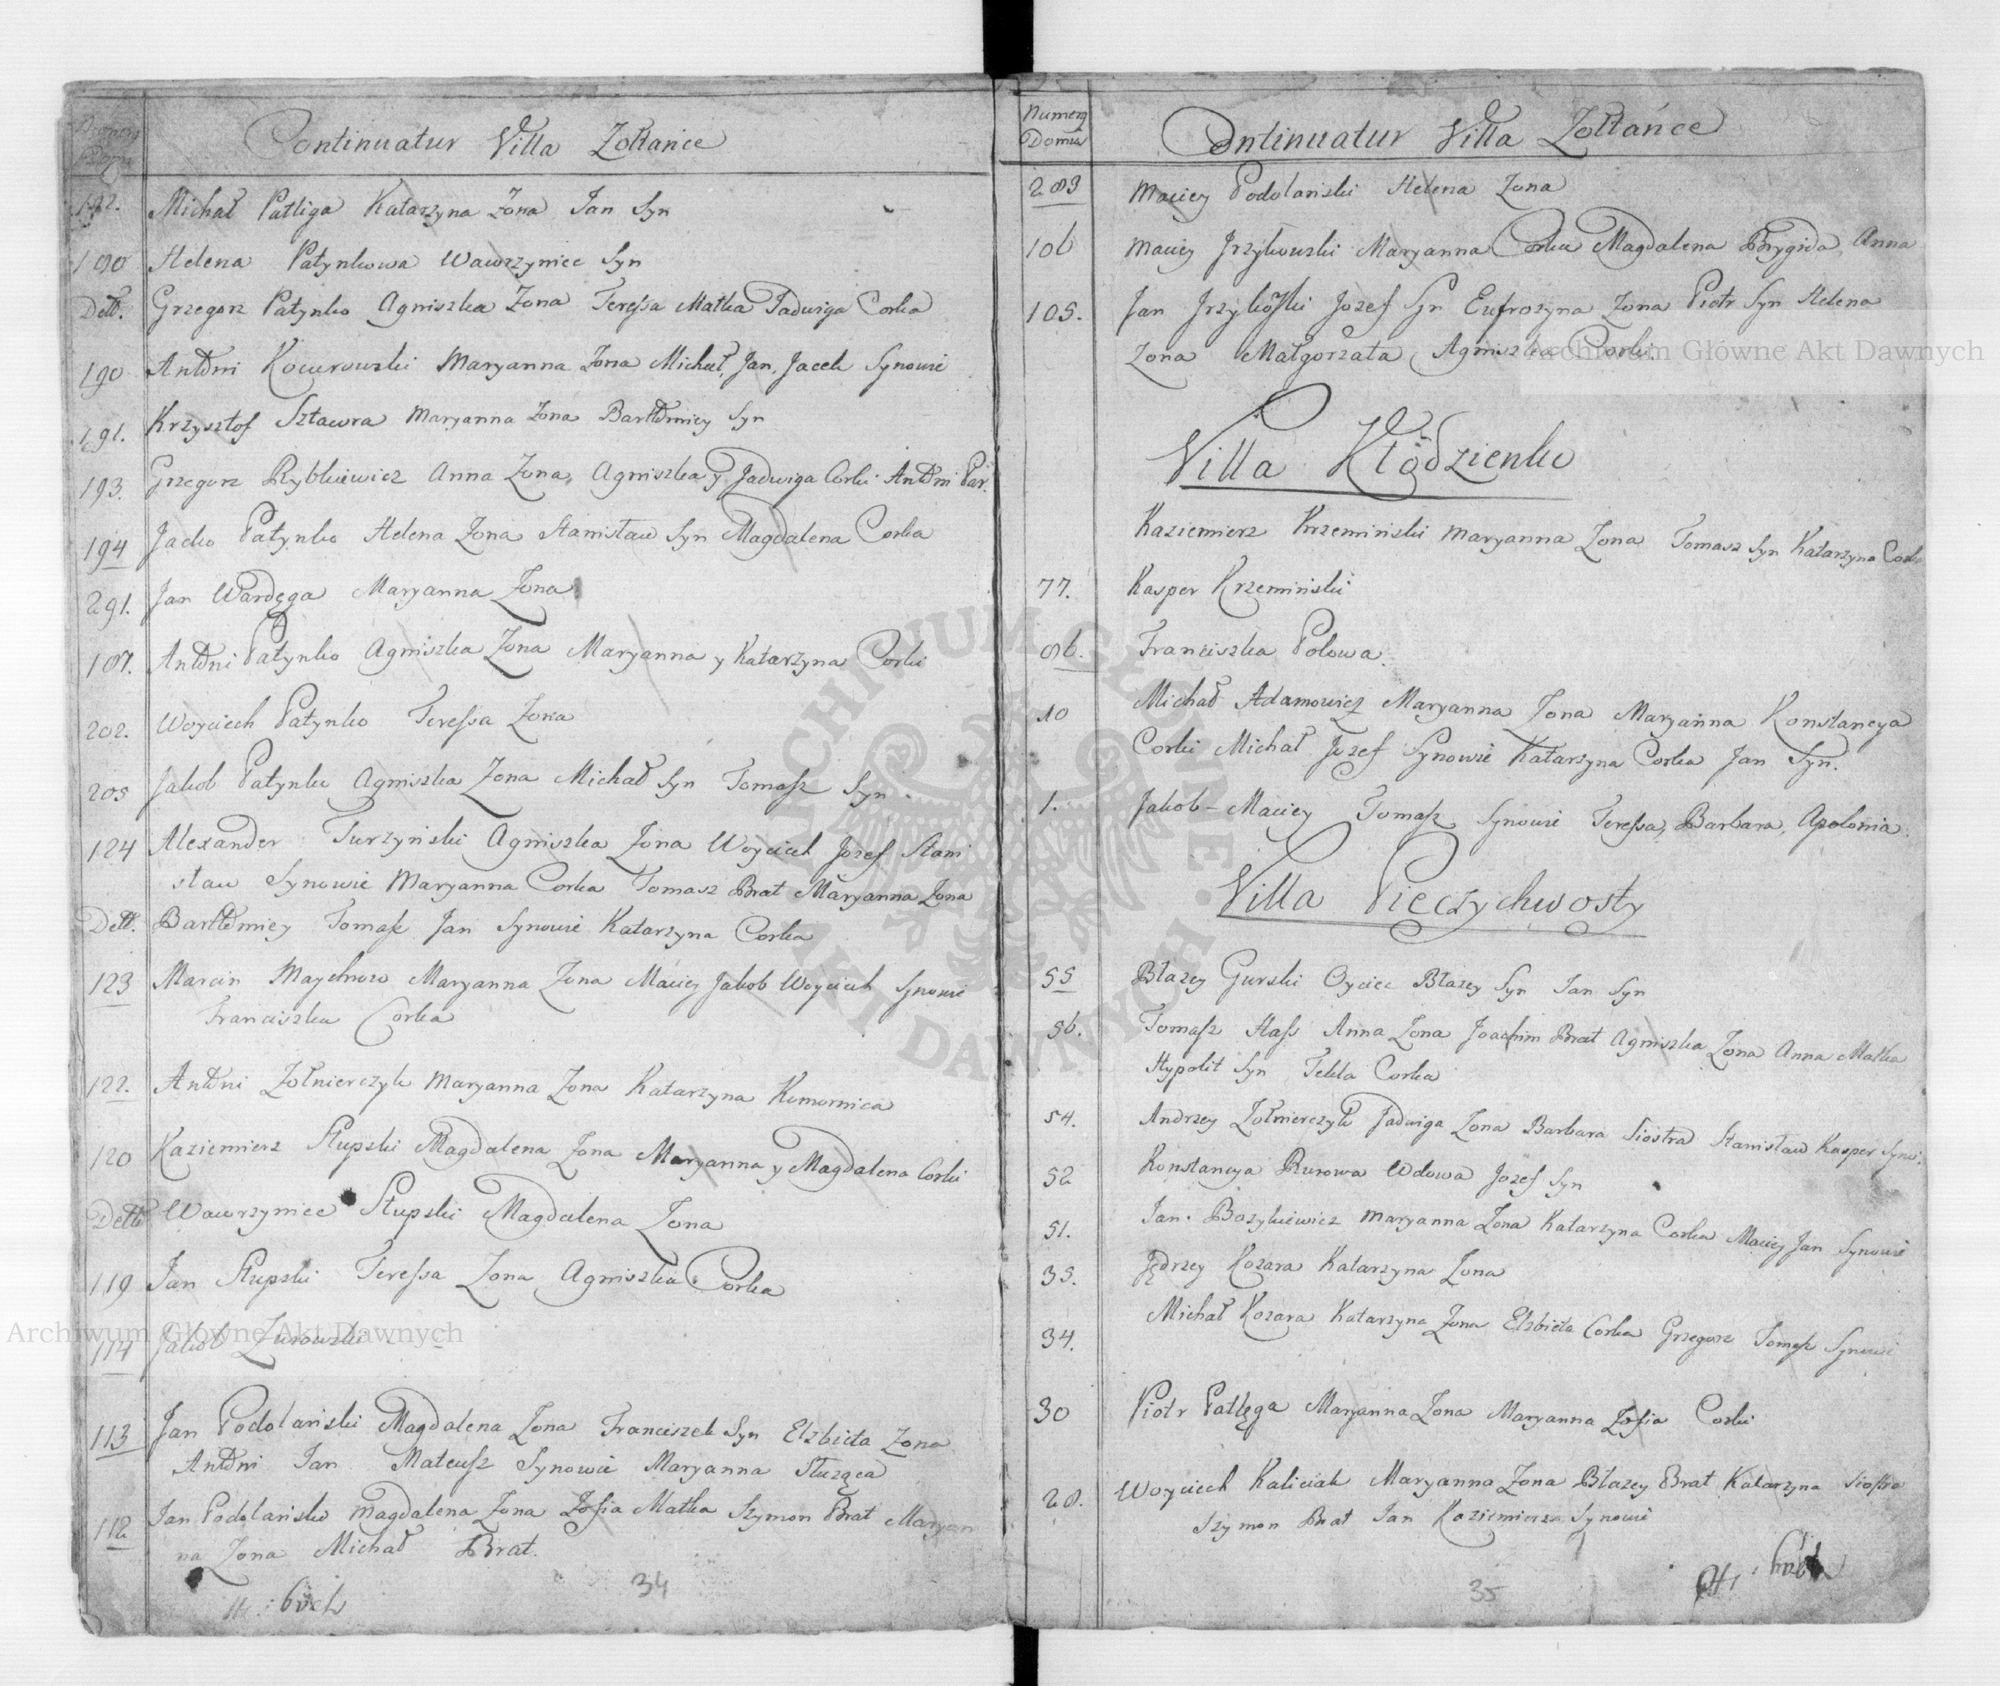 Continuatur Villa Zołtance
192. Michał Patliga Katarzyna Zona Jan Syn
190 Helena Patynkowa Wawrzyniec Syn
Dett. Grzegorz Patynko Agniszka Zona Teressa Matka Jadwiga Corka
190 Antoni Kocurowski Maryanna Zona Michał, Jan, Jacek Synowie
191. Krzysztof Sztawra Maryanna Zona Bartłomiey Syn
193. Grzegorz Rybkiewicz Anna Zona, Agniszka y Jadwiga Corki Antoni Par.
194 Jacko Patynko Helena Zona Stanisław Syn Magdalena Corka
291. Jan Wardęga Maryanna Zona
187. Antoni Patynko Agniszka Zona Maryanna y Katarzyna Corki
202. Woyciech Patynko Teressa Zona
205 Jakob Patynko Agniszka Zona Michał Syn Tomasz Syn
124 Alexander Turzyński Agniszka Zona Woyciech Jozef Stani
sław Synowie Maryanna Corka Tomasz Brat Maryanna Zona
Dett. Bartłomiey Tomasz Jan Synowie Katarzyna Corka
123 Marcin Maychrow Maryanna Zona Maciey Jakob Woyciech Synowie
Franciszka Corka
122. Antoni Zołnierczyk Maryanna Zona Katarzyna Komornica
120 Kaziemierz Słupski Magdalena Zona Maryanna y Magdalena Corki
Detto Wawrzyniec Słupski Magdalena Zona
119 Jan Słupski Teressa Zona Agniszka Corka
114 Jakob Zurowski
113 Jan Podolański Magdalena Zona Franciszek Syn Elzbieta Zona
Antoni Jan Mateusz Synowie Maryanna Służąca
112 Jan Podolański Magdalena Zona Zofia Matka Szymon Brat Maryan
na Zona Michał Brat.
34
Numerų Domus
Continuatur Villa Zołtańce
283 Maciey Podolański Helena Zona
106 Maciey Jrzykowski Maryanna Corka Magdalena Brygida, Anna
105. Jan Jrzykoski Jozef Syn Eufrozyna Zona Piotr Syn Helena
Zona Małgorzata, Agniszka Corki.
Villa Kłodzienko
Kaziemierz Krzemiński Maryanna Zona Tomasz Syn Katarzyna Corka
77. Kasper Krzemiński
86. Franciszka Polowa.
10 Michał Adamowicz Maryanna Zona Maryanna Konstancya
Corki Michał Jozef Synowie Katarzyna Corka Jan Syn.
1. Jakob Maciey Tomasz Synowie Teressa, Barbara, Apolonia.
Villa Pieczychwosty
55 Błazey Gurski Oyciec Błazey Syn Jan Syn
56. Tomasz Hass Anna Zona Joachim Brat Agniszka Zona Anna Matka
Hypolit Syn Tekla Corka
54. Andrzey Zołnierczyk Jadwiga Zona Barbara Siostra Stanisław Kasper Synow.
52 Konstancya Rurowa Wdowa Jozef Syn
51. Jan Bozykiewicz Maryanna Zona Katarzyna Corka Maciey Jan Synowie
35. Jędrzey Kozara Katarzyna Zona
34. Michał Kozara Katarzyna Zona Elzbieta Corka Grzegorz Tomasz Synowie
30 Piotr Patlęga Maryanna Zona Maryanna Zofia Corki
28. Woyciech Kaliciak Maryanna Zona Błazey Brat Katarzyna Siostra
Szymon Brat Jan Kaziemierz Synowie
35
Archiwum Główne Akt Dawnych
Archiwum Główne Akt Dawnych
ARCHIWUM GŁÓWNE AKT DAWNYCH